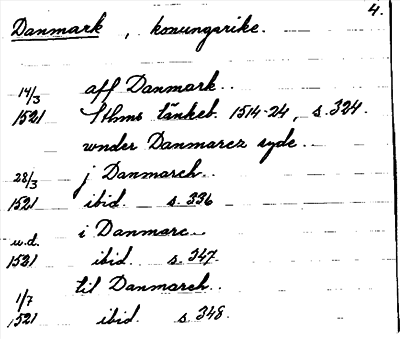 4.
Danmark, konungarike.
14/3 aff Danmark..
1521 Sthms tänkeb. 1514-24, s. 324.
wnder Danmarcz syde..
28/3 j Danmarch..
1521 ibid. s. 336
u.d. i Danmarc..
1521 ibid. s. 347
1/7 til Danmarch..
1521 ibid. s. 348.